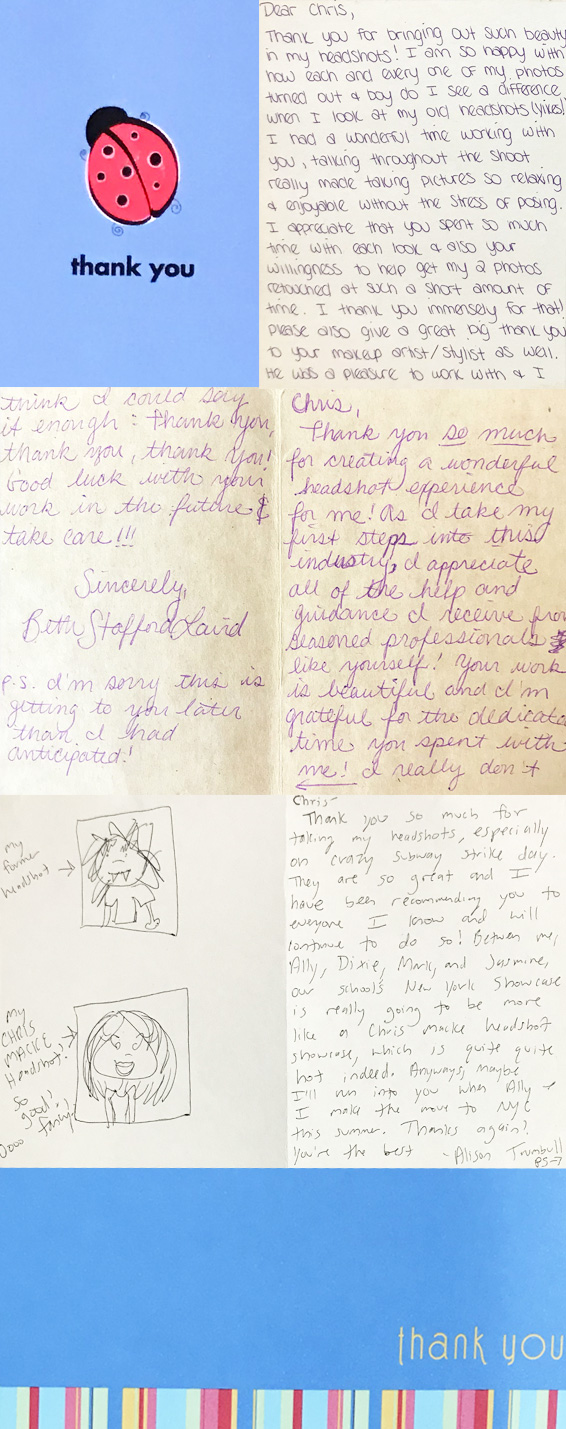 thank you
Dear Chris,
Thank you for bringing out such beauty
in my headshots! I am so happy with
how each and every one of my photos
turned out & boy do I see a difference
when I look at my old headshots (yikes)!
I had a wonderful time working with
you, talking throughout the shoot
really made taking pictures so relaxing
& enjoyable without the stress of posing.
I appreciate that you spent so much
time with each look & also your
willingness to help get my 2 photos
retouched at such a short amount of
time. I thank you immensely for that!
Please also give a great big thank you
to your makeup artist/stylist as well.
He was a pleasure to work with & I
think I could say
it enough: Thank you,
thank you, thank you!
Good luck with your
work in the future &
take care!!!
Sincerely,
Beth Stafford Laird
P.S. I'm sorry this is
getting to you later
than I had
anticipated!
Chris,
Thank you so much
for creating a wonderful
headshot experience
for me! As I take my
first steps into this
industry, I appreciate
all of the help and
guidance I receive from
seasoned professionals
like yourself! Your work
is beautiful and I'm
grateful for the dedicated
time you spent with
me! I really don't
my
former
headshot
my
CHRIS
MACKE
Headshot!
So
good!
fancy!
Oooo
Chris-
Thank you so much for
taking my headshots, especially
on crazy subway strike day.
They are so great and I
have been recommending you to
everyone I know and will
continue to do so! Between me,
Ally, Dixie, Mark, and Jasmine,
our school's New York Showcase
is really going to be more
like a Chris Macke headshot
showcase, which is quite quite
hot indeed. Anyways, maybe
I'll run into you when Ally +
I make the move to NYC
this summer. Thanks again!
You're the best -Alison Trumbull
PS→
thank you